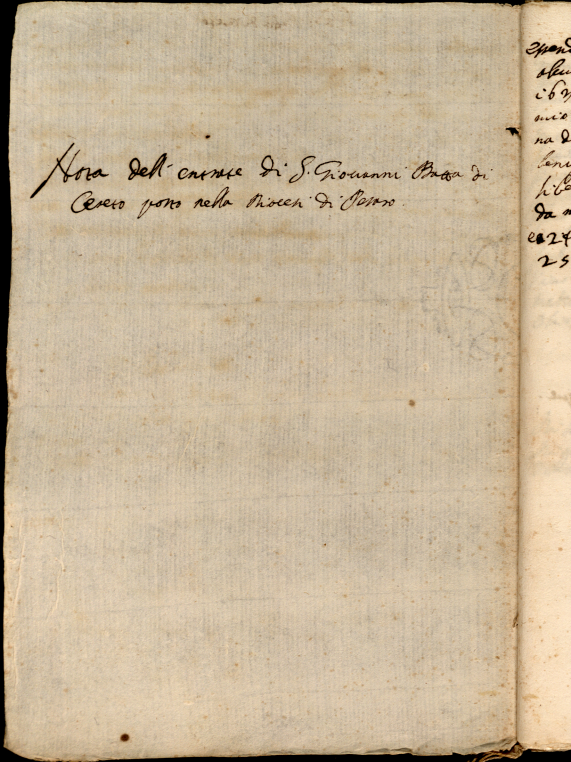 Nota dell' entrate di S. Giovanni Batta di
Cereto posto nella Diocesi di Pesaro.
na d
da